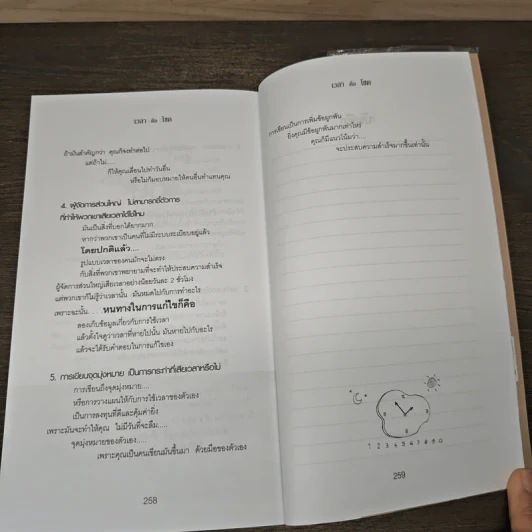 เวลา คือ โชค
ถ้ามันสำคัญกว่า คุณก็จงทำต่อไป
แต่ถ้าไม่....
ก็ให้คุณเลื่อนไปทำวันอื่น
หรือไม่ก็มอบหมายให้คนอื่นทำแทนคุณ
4. ผู้จัดการส่วนใหญ่ ไม่สามารถชี้ตัวการ
ที่ทำให้พวกเขาเสียเวลาได้ใช่ไหม
มันเป็นสิ่งที่บอกได้ยากมาก
หากว่าพวกเขาเป็นคนที่ไม่มีระบบระเบียบอยู่แล้ว
โดยปกติแล้ว....
รูปแบบเวลาของคนมักจะไม่ตรง
กับสิ่งที่พวกเขาพยายามที่จะทำให้ประสบความสำเร็จ
ผู้จัดการส่วนใหญ่เสียเวลาอย่างน้อยวันละ 2 ชั่วโมง
แต่พวกเขาก็ไม่รู้ว่าเวลานั้น มันหมดไปกับการทำอะไร
เพราะฉะนั้น.... หนทางในการแก้ไขก็คือ
ลองเก็บข้อมูลเกี่ยวกับการใช้เวลา
แล้วตั้งใจดูว่าเวลาที่หายไปนั้น มันหายไปกับอะไร
แล้วจะได้รับคำตอบในการแก้ไขเอง
5. การเขียนจุดมุ่งหมาย เป็นการกระทำที่เสียเวลาหรือไม่
การเขียนถึงจุดมุ่งหมาย....
หรือการวางแผนให้กับการใช้เวลาของตัวเอง
เป็นการลงทุนที่ดีและคุ้มค่ายิ่ง
เพราะมันจะทำให้คุณ ไม่มีวันที่จะลืม.....
จุดมุ่งหมายของตัวเอง.....
เพราะคุณเป็นคนเขียนมันขึ้นมา ด้วยมือของตัวเอง
258
เวลา คือ โชค
การเขียนเป็นการเพิ่มข้อผูกพัน
ยิ่งคุณมีข้อผูกพันมากเท่าไหร่
คุณก็มีแนวโน้มว่า....
จะประสบความสำเร็จมากขึ้นเท่านั้น
1 2 3 4 5 6 7 8 9 0
259